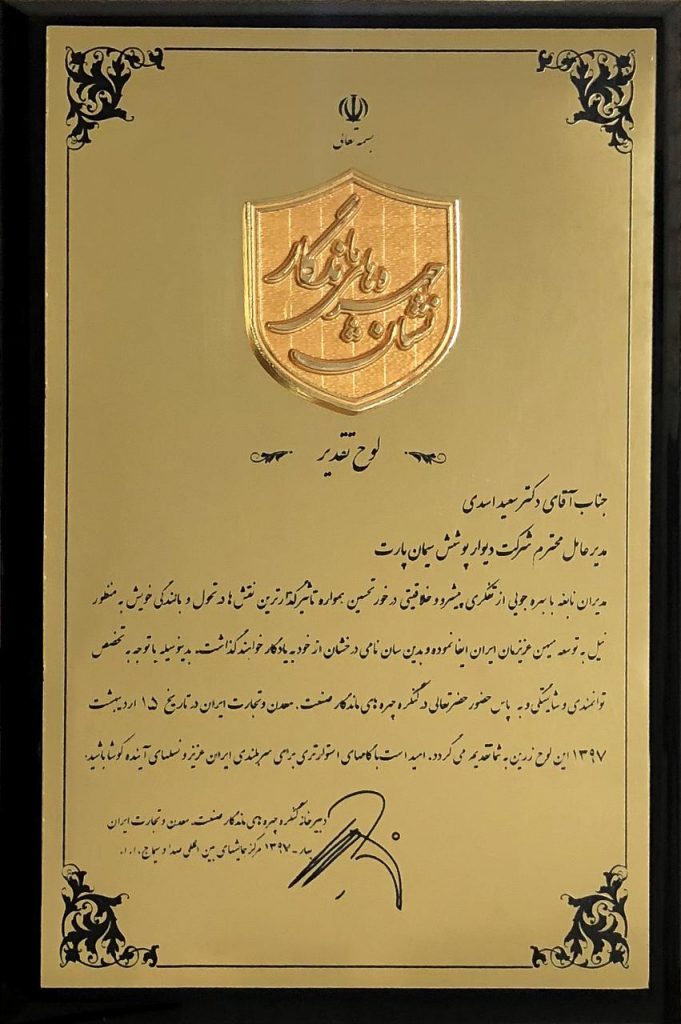 بسمه تعالی
نشان چهره‌های ماندگار
لوح تقدیر
جناب آقای دکتر سعید اسدی
مدیر عامل محترم شرکت دیوار پوشش سیمان پارت
مدیران نابغه با بهره جویی از تفکری پیشرو و خلاقیتی در خور تحسین همواره تاثیرگذارترین نقش ها در تحول و بالندگی خویش به منظور
نیل به توسعه میهن عزیزمان ایران ایفا نموده و بدین سان نامی درخشان از خود به یادگار خواهند گذاشت. بدینوسیله با توجه به تخصص
توانمندی و شایستگی و به پاس حضور حضرتعالی در کنگره چهره های ماندگار صنعت، معدن و تجارت ایران در تاریخ ۱۵ اردیبهشت
۱۳۹۷ این لوح زرین به شما تقدیم می گردد. امید است با گامهای استوارتری برای سربلندی ایران عزیز و نسلهای آینده کوشا باشید.
دبیرخانه کنگره چهره های ماندگار صنعت، معدن و تجارت ایران
بهار - ۱۳۹۷ مرکز همایشهای بین المللی صدا و سیما ج.ا.ا.